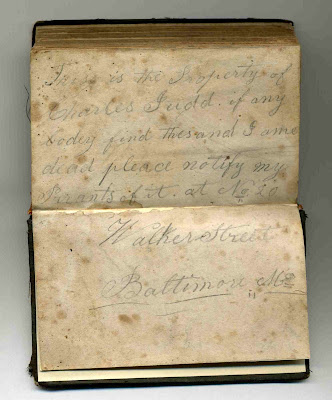 This is the Property of
Charles Judd. if any
bodey find thes and I ame
dead pleace notify my
Parants of it. at No. 20
Walker Street
Baltimore Md